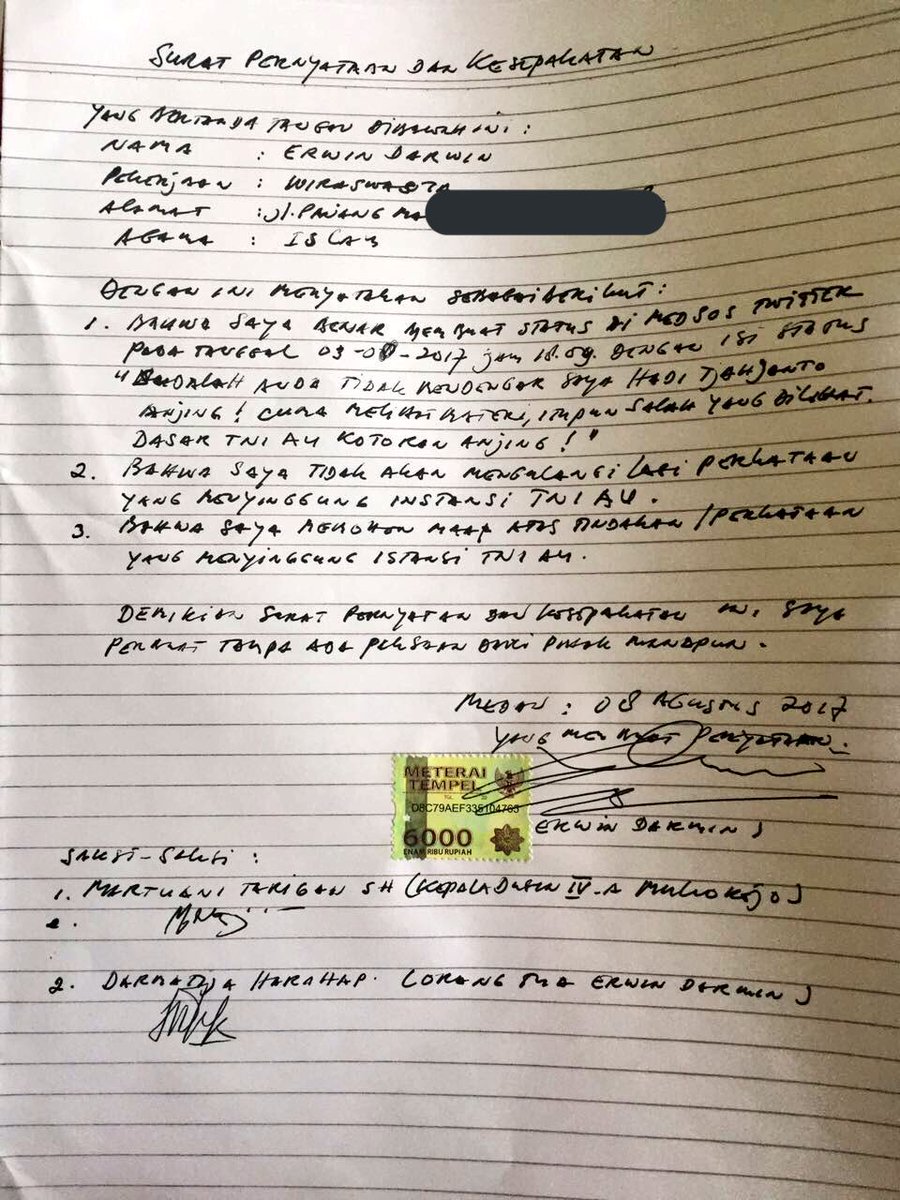 SURAT PERNYATAAN DAN KESEPAKATAN
YANG BERTANDA TANGAN DIBAWAH INI :
NAMA : ERWIN DARWIN
PEKERJAAN : WIRASWASTA
ALAMAT : Jl. PAJANG MA
AGAMA : ISLAM
DENGAN INI MENYATAKAN SEBAGAI BERIKUT :
1. BAHWA SAYA BENAR MEMBUAT STATUS DI MEDSOS TWITTER
PADA TANGGAL 03-08-2017 jam 18.09. DENGAN ISI STATUS
" ANDA TIDAK MENDENGAR SAYA HADI TJAHJANTO
ANJING ! CUMA MELIHAT MATERI, ITUPUN SALAH YANG DILIHAT.
DASAR TNI AU KOTORAN ANJING ! "
2. BAHWA SAYA TIDAK AKAN MENGULANGI LAGI PERKATAAN
YANG MENYINGGUNG INSTANSI TNI AU.
3. BAHWA SAYA MEMOHON MAAF ATAS TINDAKAN / PERKATAAN
YANG MENYINGGUNG ISTANSI TNI AU.
DEMIKIAN SURAT PERNYATAN DAN KESEPAKATAN INI SAYA
PERBUAT TANPA ADA PAKSAAN DARI PIHAK MANAPUN.
MEDAN : 08 AGUSTUS 2017
YANG MEMBUAT PERNYATAAN
METERAI
TEMPEL
TGL 20
D8C79AEF335104765
6000
ENAM RIBU RUPIAH
ERWIN DARWIN )
SAKSI-SAKSI :
1. MARTUANI TARIGAN SH (KEPALA DUSUN IV-A Mulio Rejo)
2. DARMATIJA HARAHAP. (ORANG TUA ERWIN DARWIN )